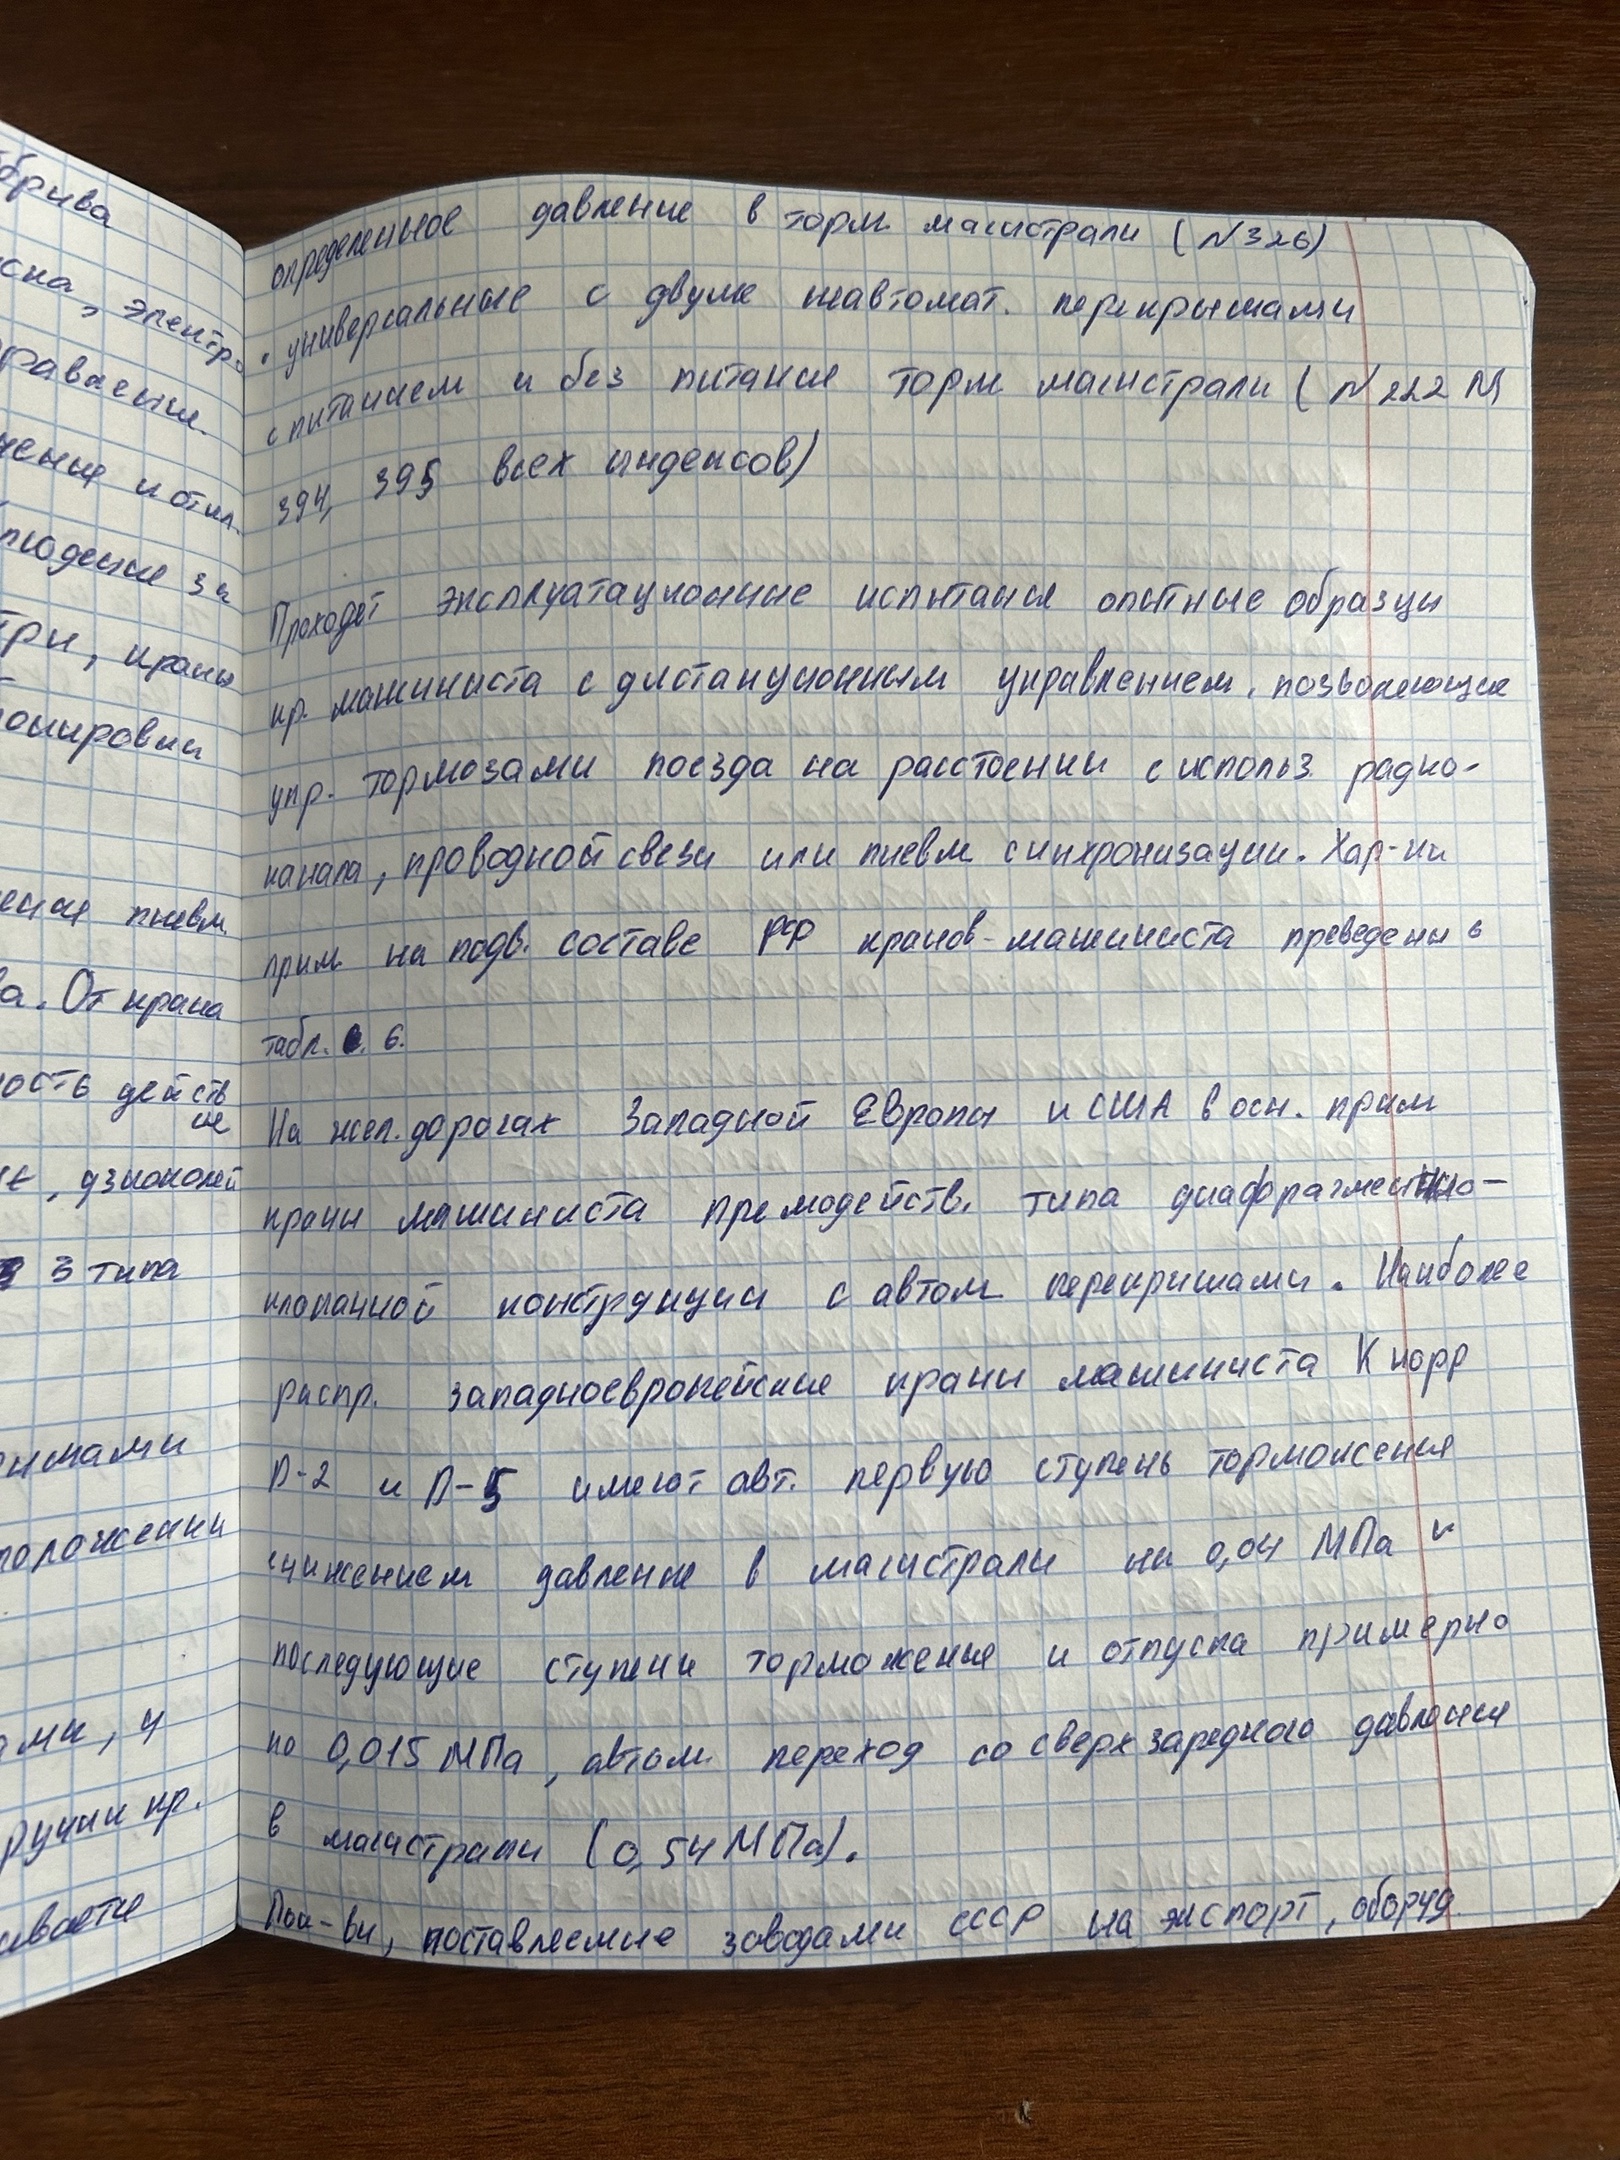 определенное давление в торм. магистрали (N326)
• универсальные с двумя неавтомат. перекрышами
с питанием и без питания торм магистрали (N 222 М,
394, 395 всех индексов)
Проходят эксплуатационные испытания опытные образцы
кр. машиниста с дистанционным управлением, позволяющие
упр. тормозами поезда на расстоянии с использ радио-
канала, проводной связи или пневм синхронизации. Хар-ки
прим на подв. составе РФ кранов-машиниста приведены в
табл. 6.
На жел. дорогах Западной Европы и США в осн. прим
краны машиниста прямодейств. типа диафрагменно-
клапанной конструкции с автом перекрышами. Наиболее
распр. западноевропейские краны машиниста Кнорр
D-2 и D-5 имеют авт. первую ступень торможения
снижением давление в магистрали на 0,04 МПа и
последующие ступени торможения и отпуска примерно
по 0,015 МПа, автом. переход со сверхзарядного давления
в магистрали (0,54 МПа).
Лок-вы, поставляемые заводами СССР на экспорт, оборуд.
брива
сна, электро
равление.
чение и откл.
людение за
три, краны
окировки
ения пневм
ва. От крана
ость действ
ия
3 типа
ышами
положении
ами, и
ручки кр.